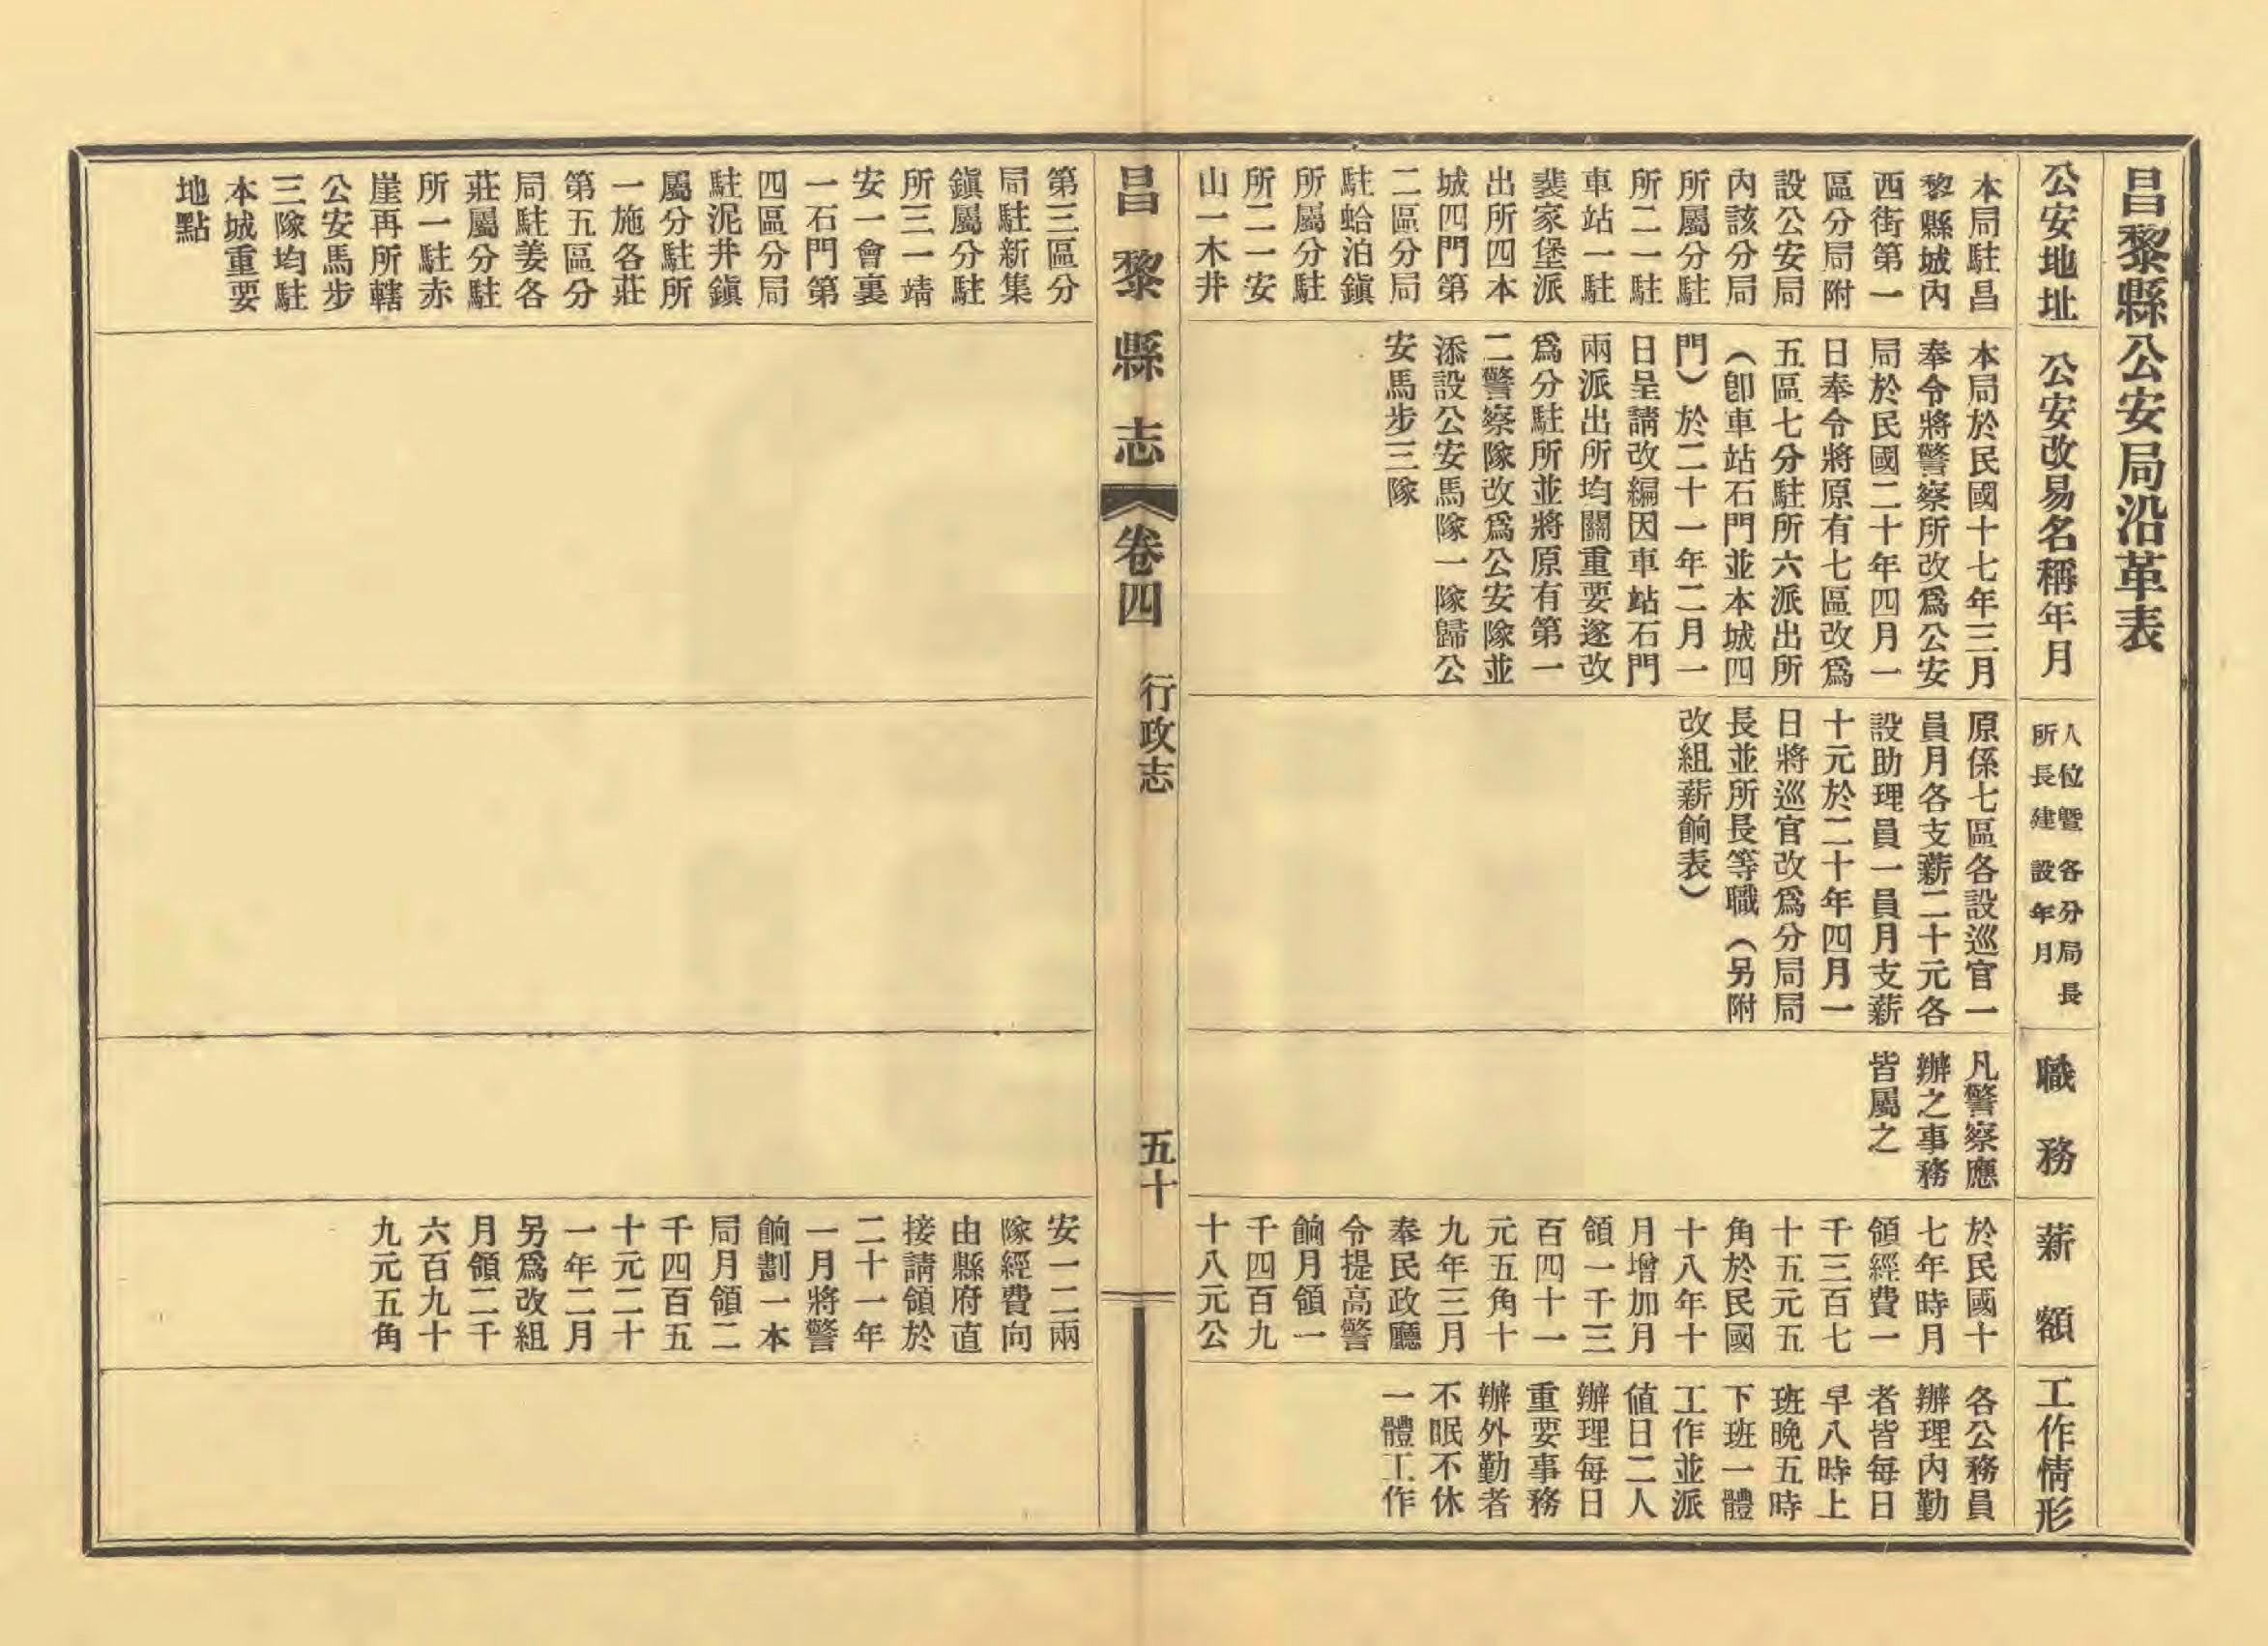 昌黎縣公安局沿革表
公安地址
本局駐昌
黎縣城內
西街第一
區分局附
設公安局
內該分局
所屬分駐
所二一駐
車站一駐
裴家堡派
出所四本
城四門第
二區分局
駐蛤泊鎭
所屬分駐
所二一安
山一木井
第三區分
局駐新集
鎭屬分駐
所三一靖
安一會裏
一石門第
四區分局
駐泥井鎭
屬分駐所
一施各莊
第五區分
局駐姜各
莊屬分駐
所一駐赤
崖再所轄
公安馬步
三隊均駐
本城重要
地點
公安改易名稱年月
本局於民國十七年三月
奉令將警察所改爲公安
局於民國二十年四月一
日奉令將原有七區改爲
五區七分駐所六派出所
（卽車站石門並本城四
門）於二十一年二月一
日呈請改編因車站石門
兩派出所均關重要遂改
爲分駐所並將原有第一
二警察隊改爲公安隊並
添設公安馬隊一隊歸公
安馬步三隊
人位曁各分局長
所長建設年月
原係七區各設巡官一
員月各支薪二十元各
設助理員一員月支薪
十元於二十年四月一
日將巡官改爲分局局
長並所長等職（另附
改組薪餉表）
職務
凡警察應
辦之事務
皆屬之
薪額
於民國十
七年時月
領經費一
千三百七
十五元五
角於民國
十八年十
月增加月
領一千三
百四十一
元五角十
九年三月
奉民政廳
令提高警
餉月領一
千四百九
十八元公
安一二兩
隊經費向
由縣府直
接請領於
二十一年
一月將警
餉劃一本
局月領二
千四百五
十元二十
一年二月
另爲改組
月領二千
六百九十
九元五角
工作情形
各公務員
辦理內勤
者皆每日
早八時上
班晚五時
下班一體
工作並派
値日二人
辦理每日
重要事務
辦外勤者
不眠不休
一體工作
昌黎縣志
卷四
行政志
五十